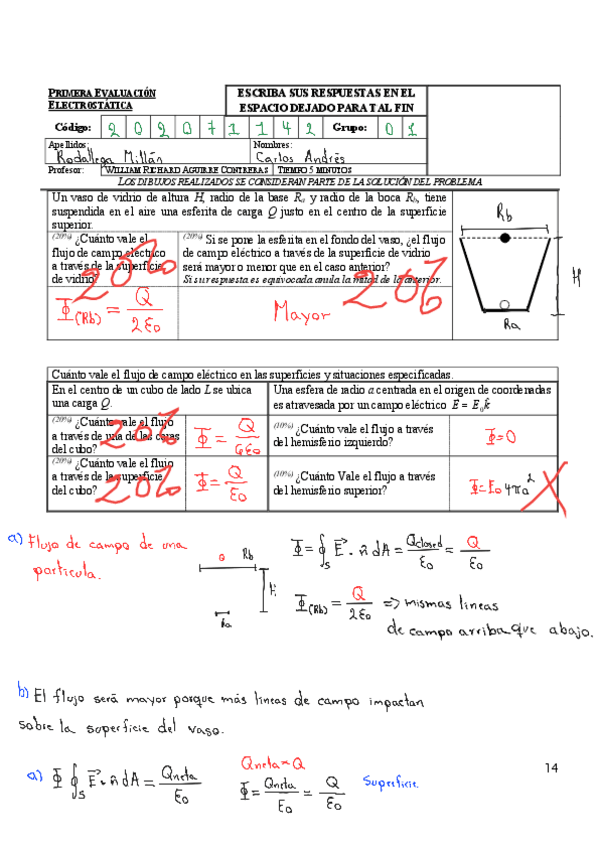 PRIMERA EVALUACIÓN
ELECTROSTÁTICA
ESCRIBA SUS RESPUESTAS EN EL
ESPACIO DEJADO PARA TAL FIN
Código: 2 0 2 0 7 1 1 4 2 Grupo: 0 1
Apellidos: Rodallega Millán Nombres: Carlos Andrés
Profesor: WILLIAM RICHARD AGUIRRE CONTRERAS TIEMPO 5 MINUTOS
LOS DIBUJOS REALIZADOS SE CONSIDERAN PARTE DE LA SOLUCIÓN DEL PROBLEMA
Un vaso de vidrio de altura H, radio de la base Ra y radio de la boca Rb, tiene
suspendida en el aire una esferita de carga Q justo en el centro de la superficie
superior.
(20%) ¿Cuánto vale el
flujo de campo eléctrico
a través de la superficie
de vidrio?
20%
(20%) Si se pone la esferita en el fondo del vaso, ¿el flujo
de campo eléctrico a través de la superficie de vidrio
será mayor o menor que en el caso anterior?
Si su respuesta es equivocada anula la mitad de la anterior.
20%
Φ(Rb) = Q/2ε0
Mayor
Rb
H
Ra
Cuánto vale el flujo de campo eléctrico en las superficies y situaciones especificadas.
En el centro de un cubo de lado L se ubica
una carga Q.
Una esfera de radio a centrada en el origen de coordenadas
es atravesada por un campo eléctrico E = E0k̂
(20%) ¿Cuánto vale el flujo
a través de una de las caras
del cubo?
20%
Φ = Q/6ε0
(10%) ¿Cuánto vale el flujo a través
del hemisferio izquierdo?
Φ=0
(20%) ¿Cuánto vale el flujo
a través de la superficie
del cubo?
20%
Φ = Q/ε0
(10%) ¿Cuánto Vale el flujo a través
del hemisferio superior?
Φ=E0 4πa²
a) Flujo de campo de una
partícula.
Q Rb
H
Ra
Φ = ∮S E⃗ · n̂ dA = Qclosed/ε0 = Q/ε0
Φ(Rb) = Q/2ε0 => mismas lineas
de campo arriba que abajo.
b) El flujo será mayor porque más lineas de campo impactan
sobre la superficie del vaso.
a) Φ ∮S E⃗ · n̂ dA = Qneta/ε0
Qneta = Q
Φ = Qneta/ε0 = Q/ε0
Superficie.
14